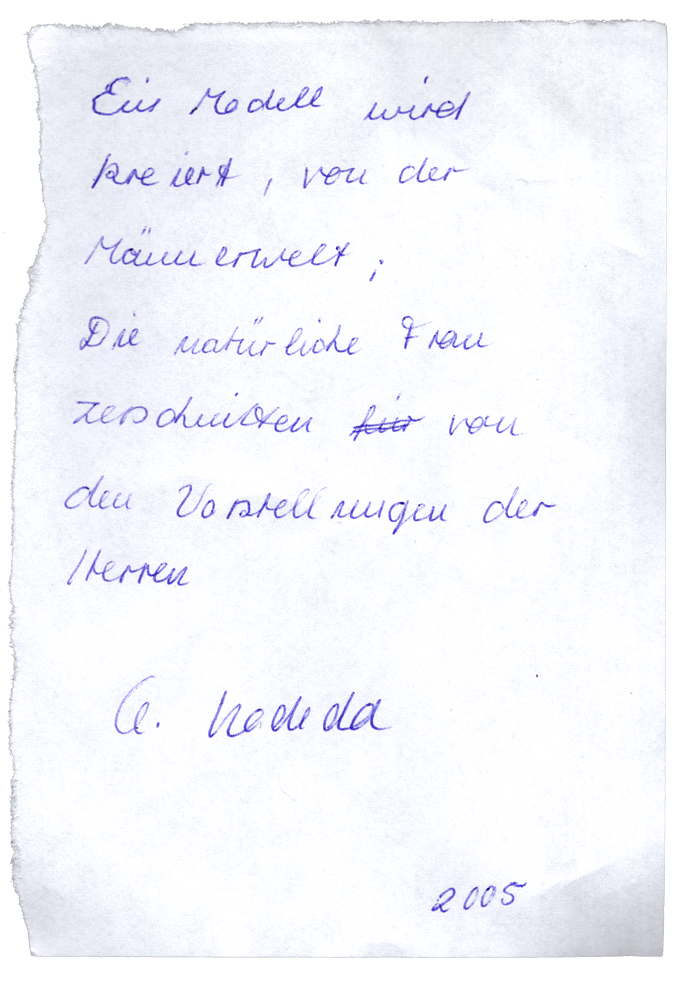 Ein Modell wird
kreiert, von der
Männerwelt;
Die natürliche Frau
zerschnitten für von
den Vorstellungen der
Herren
G.
2005